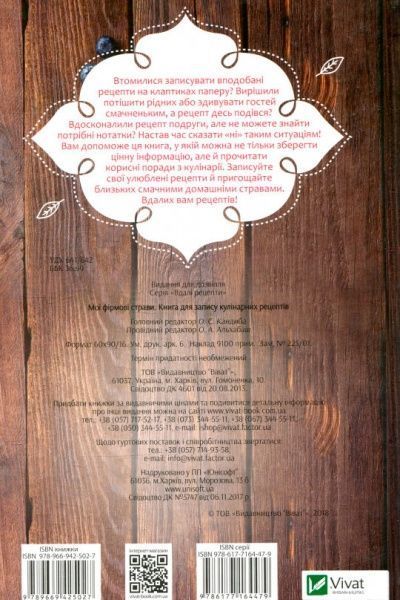 Втомилися записувати вподобані
рецепти на клаптиках паперу? Вирішили
потішити рідних або здивувати гостей
смачненьким, а рецепт десь подівся?
Вдосконалили рецепт подруги, але не можете знайти
потрібні нотатки? Настав час сказати «ні» таким ситуаціям!
Вам допоможе ця книга, у якій можна не тільки зберегти
цінну інформацію, але й прочитати
корисні поради з кулінарії. Записуйте
свої улюблені рецепти й пригощайте
близьких смачними домашніми стравами.
Вдалих вам рецептів!
УДК 641/642
ББК 36.99
Видання для дозвілля
Серія «Вдалі рецепти»
Мої фірмові страви. Книга для запису кулінарних рецептів
Головний редактор О. С. Кандиба
Провідний редактор О. А.
Формат 60х90/16. Ум. друк. арк. 6. Наклад 9100 прим. Зам. № 225/01.
Термін придатності необмежений
ТОВ «Видавництво "Віват"»,
61037, Україна, м. Харків, вул. Гомоненка, 10.
Свідоцтво ДК 4601 від 20.08.2013.
Придбати книжки за видавничими цінами та подивитися детальну інформацію
про інші видання можна на сайті www.vivat-book.com.ua
тел.: +38 (057) 717-52-17, +38 (073) 344-55-11, +38 (067) 344-55-11,
+38 (050) 344-55-11, e-mail: ishop@vivat.factor.ua
Щодо гуртових поставок і співробітництва звертатися:
тел.: +38 (057) 714-93-58,
e-mail: info@vivat.factor.ua
Надруковано у ПП «Юнісофт»
61036, м.Харків, вул. Морозова, 13 б
www.unisoft.ua
Свідоцтво ДК №5747 від 06.11.2017 р.
© ТОВ «Видавництво "Віват"», 2018
ISBN книжки
978-966-942-502-7
9 789669 425027
інтернет-магазин
ISBN серії
978-617-7164-47-9
9 786177 164479
Vivat